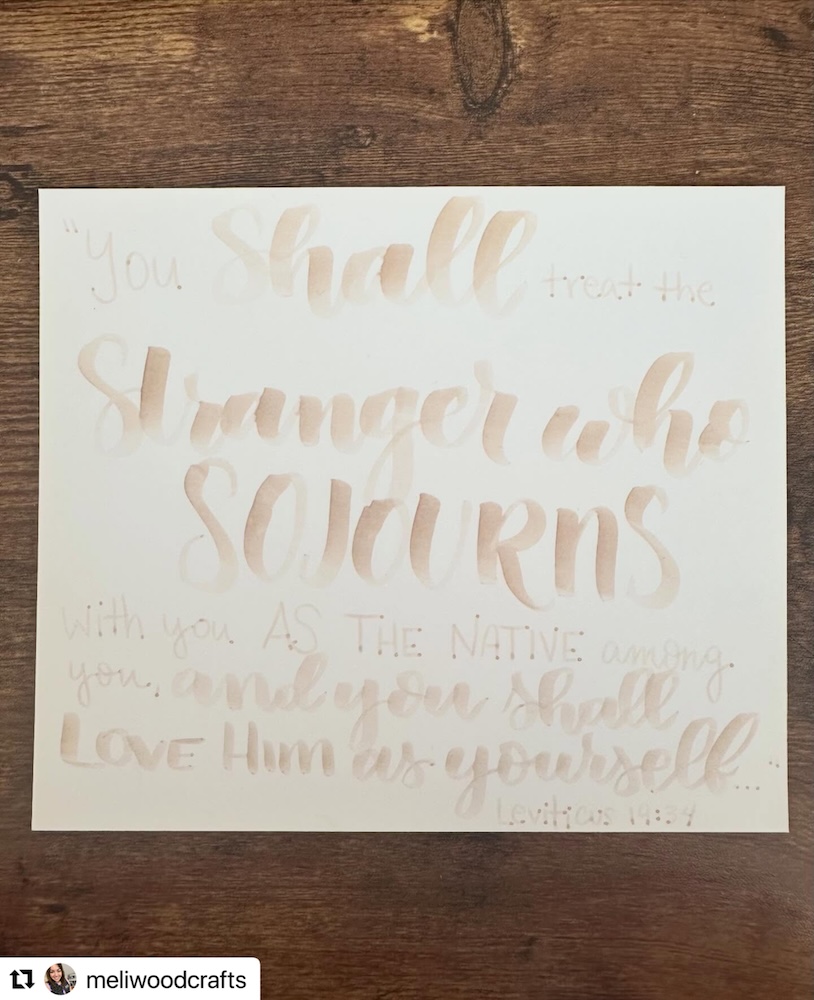 "You Shall treat the
Stranger who
SOJOURNS
with you AS THE NATIVE among
you, and you shall
LOVE HIM as yourself..."
Leviticus 19:34
meliwoodcrafts